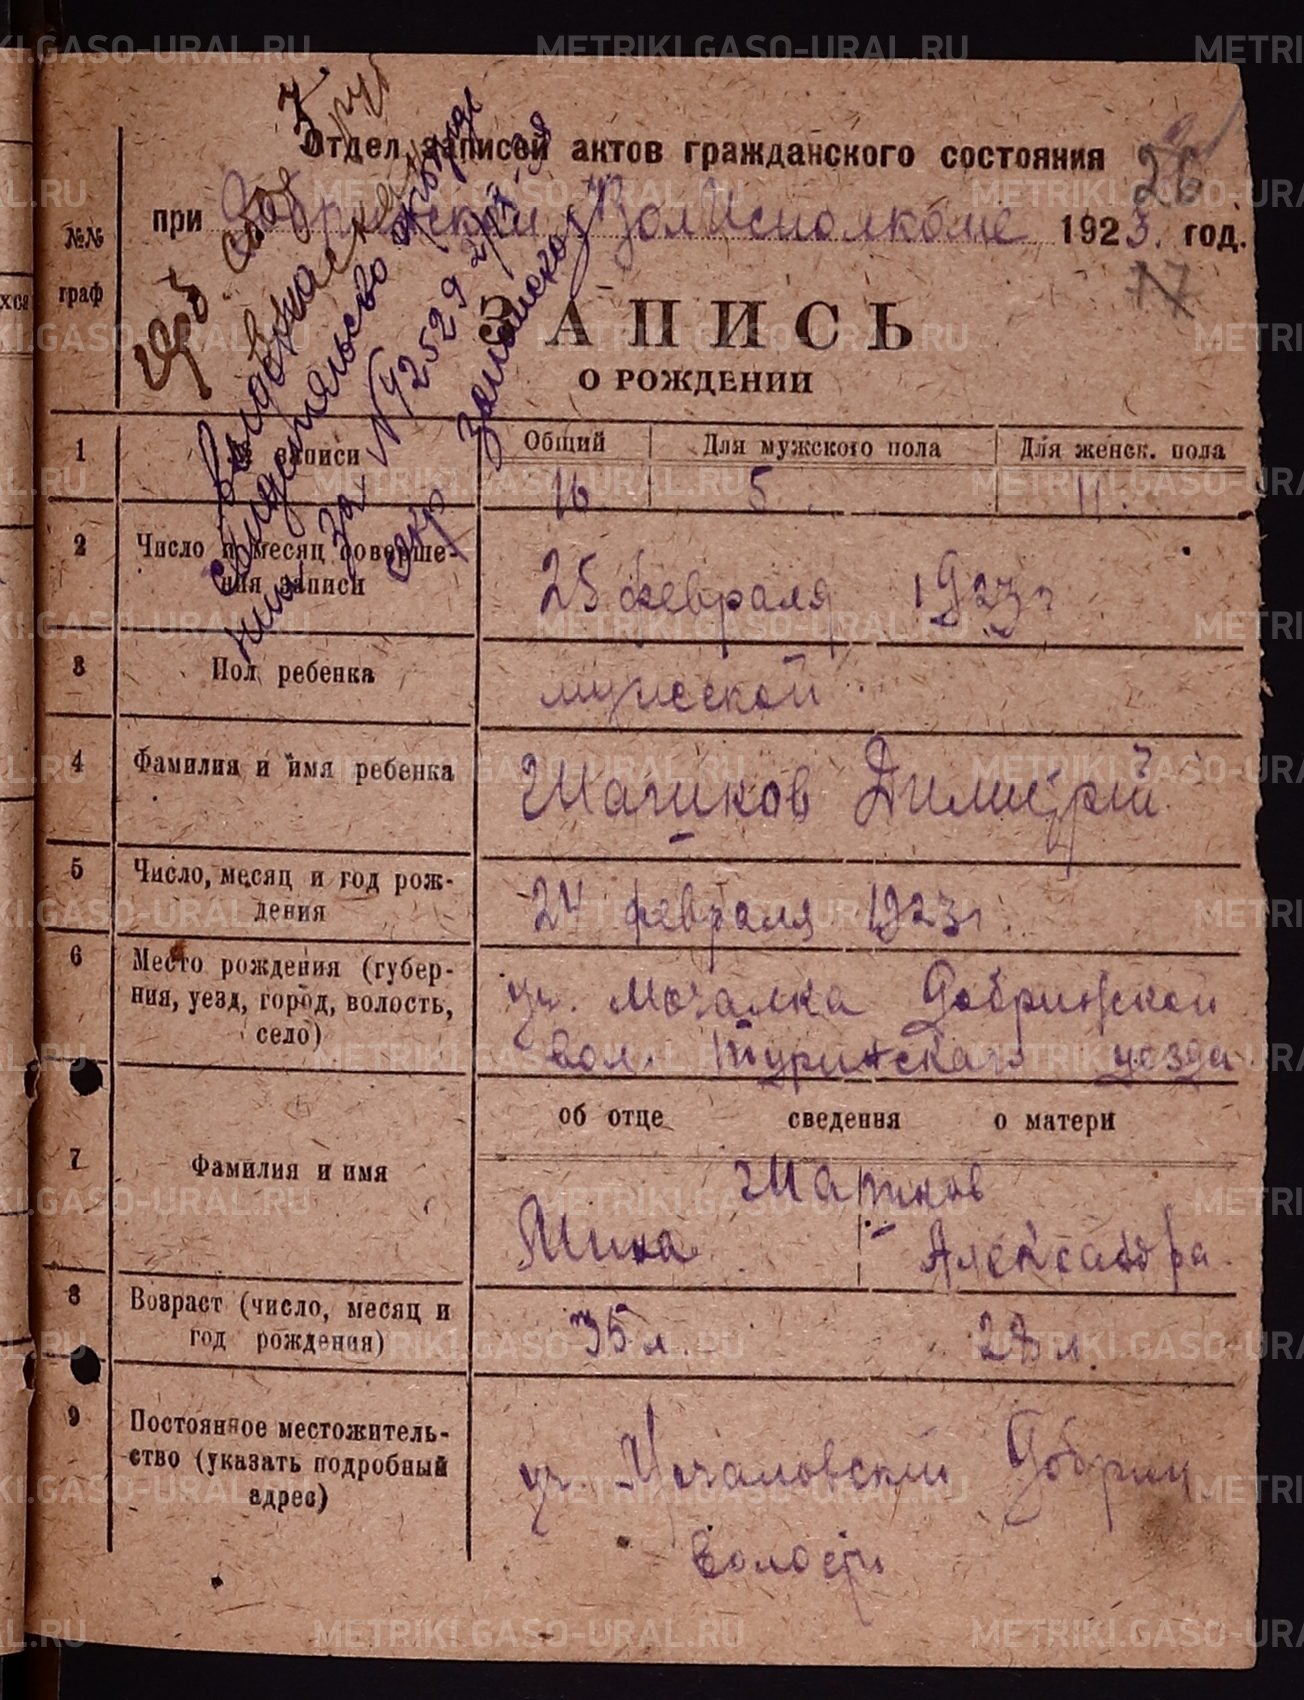 Отдел записей актов гражданского состояния
26
при Добринском ВолИсполкоме 1923 год.
17
№№ граф
ЗАПИСЬ
О РОЖДЕНИИ
Выдано
свидетельство о рожде
нии за № 42529
1 № записи Общий Для мужского пола Для женск. пола
16 5 11.
2 Число и месяц соверше-
ния записи 25 февраля 1923 г
3 Пол ребенка мужской
4 Фамилия и имя ребенка Шариков Димитрий
5 Число, месяц и год рож-
дения 24 февраля 1923 г.
6 Место рождения (губер-
ния, уезд, город, волость,
село) уч. Мочалка Добринской
вол. Туринскаго уезда
об отце сведения о матери
7 Фамилия и имя Шариков
Мина Александра
8 Возраст (число, месяц и
год рождения) 35 л. 28 л.
9 Постоянное местожитель-
ство (указать подробный
адрес) уч. Мочаловский Добрин
волости
METRIKI.GASO-URAL.RU